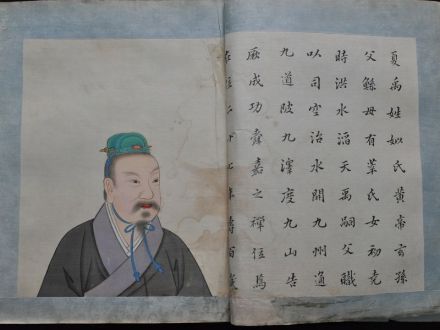 夏禹姓姒氏黄帝玄孫
父鯀母有莘氏女初堯
時洪水滔天禹嗣父職
以司空治水開九州通
九道陂九澤度九山告
厥成功舜嘉之禪位焉
在位 年壽百歲